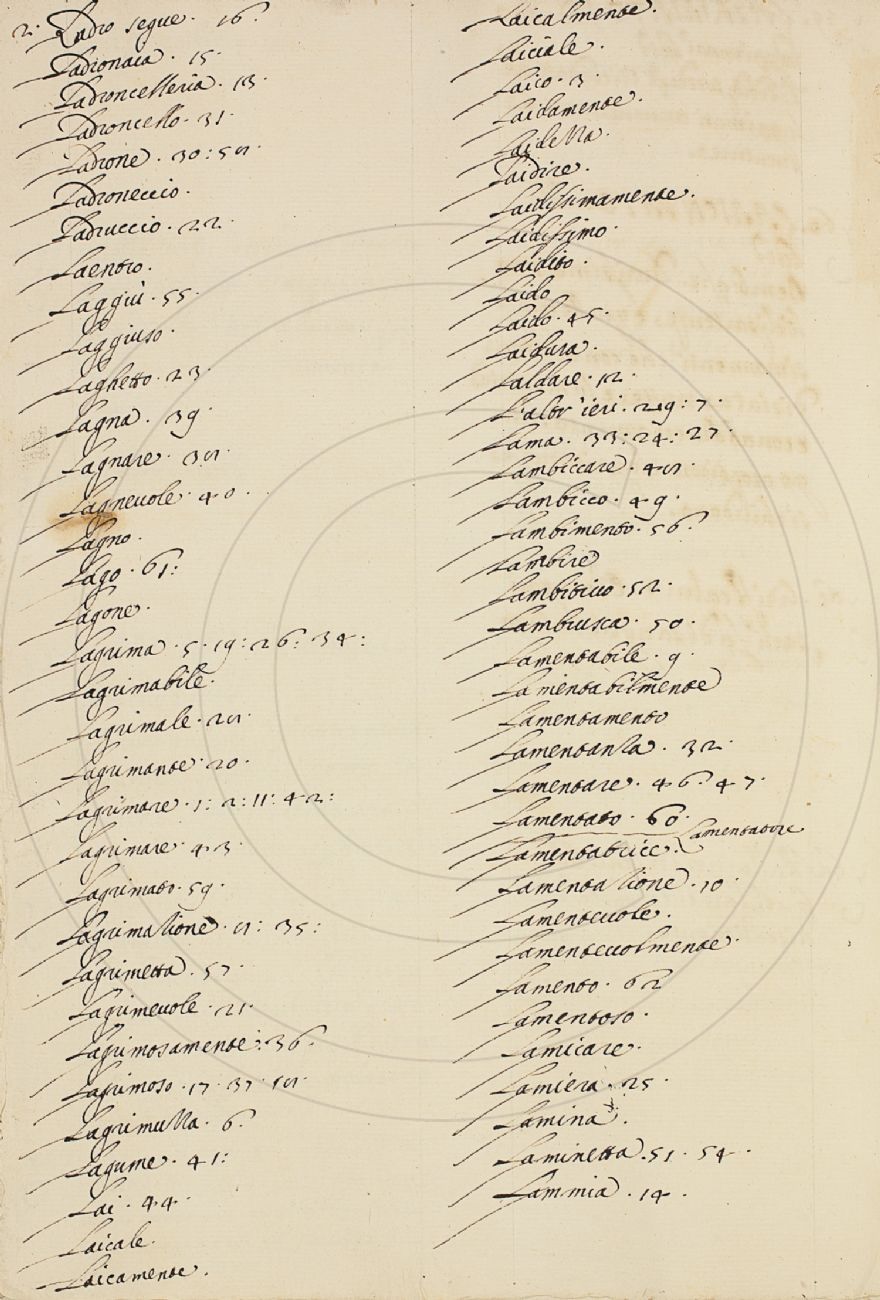 2. Ladro segue. 16.
Ladronaia. 15.
Ladroncelleria. 13.
Ladroncello. 31.
Ladrone. 30:58.
Ladroneccio.
Ladruccio. 22.
Laentro.
Laggiù. 55.
Laggiuso.
Laghetto. 23.
Lagna. 39.
Lagnare. 38.
Lagnevole. 40.
Lagno.
Lago. 61:
Lagone.
Lagrima. 5. 19: 26: 34:
Lagrimabile.
Lagrimale. 28.
Lagrimante. 20.
Lagrimare. 1: 2: 11: 42:
Lagrimare. 43.
Lagrimato. 59.
Lagrimazione. 8: 35:
Lagrimetta. 57.
Lagrimevole. 21.
Lagrimosamente. 36.
Lagrimoso. 17. 37. 18.
Lagrimuzza. 6.
Lagume. 41:
Lai. 44.
Laicale.
Laicamente.
Laicalmente.
Laiciale.
Laico. 3.
Laidamente.
Laidezza.
Laidire.
Laidissimamente.
Laidissimo.
Laidito.
Laido
Laido. 45.
Laidura.
Laldare. 12.
L'altr'ieri. 29: 7.
Lama. 33: 24: 27
Lambiccare. 48.
Lambicco. 49.
Lambimento. 56.
Lambire
Lambitivo. 52.
Lambrusca. 50.
Lamentabile. 9.
Lamentabilmente
Lamentamento
Lamentanza. 32.
Lamentare. 46. 47.
Lamentato. 60.
Lamentatore
Lamentatrice.
Lamentazione. 10.
Lamentevole.
Lamentevolmente.
Lamento. 62
Lamentoso.
Lamicare.
Lamiera. 25.
Lamina.
Laminetta. 51. 54.
Lammia. 14.